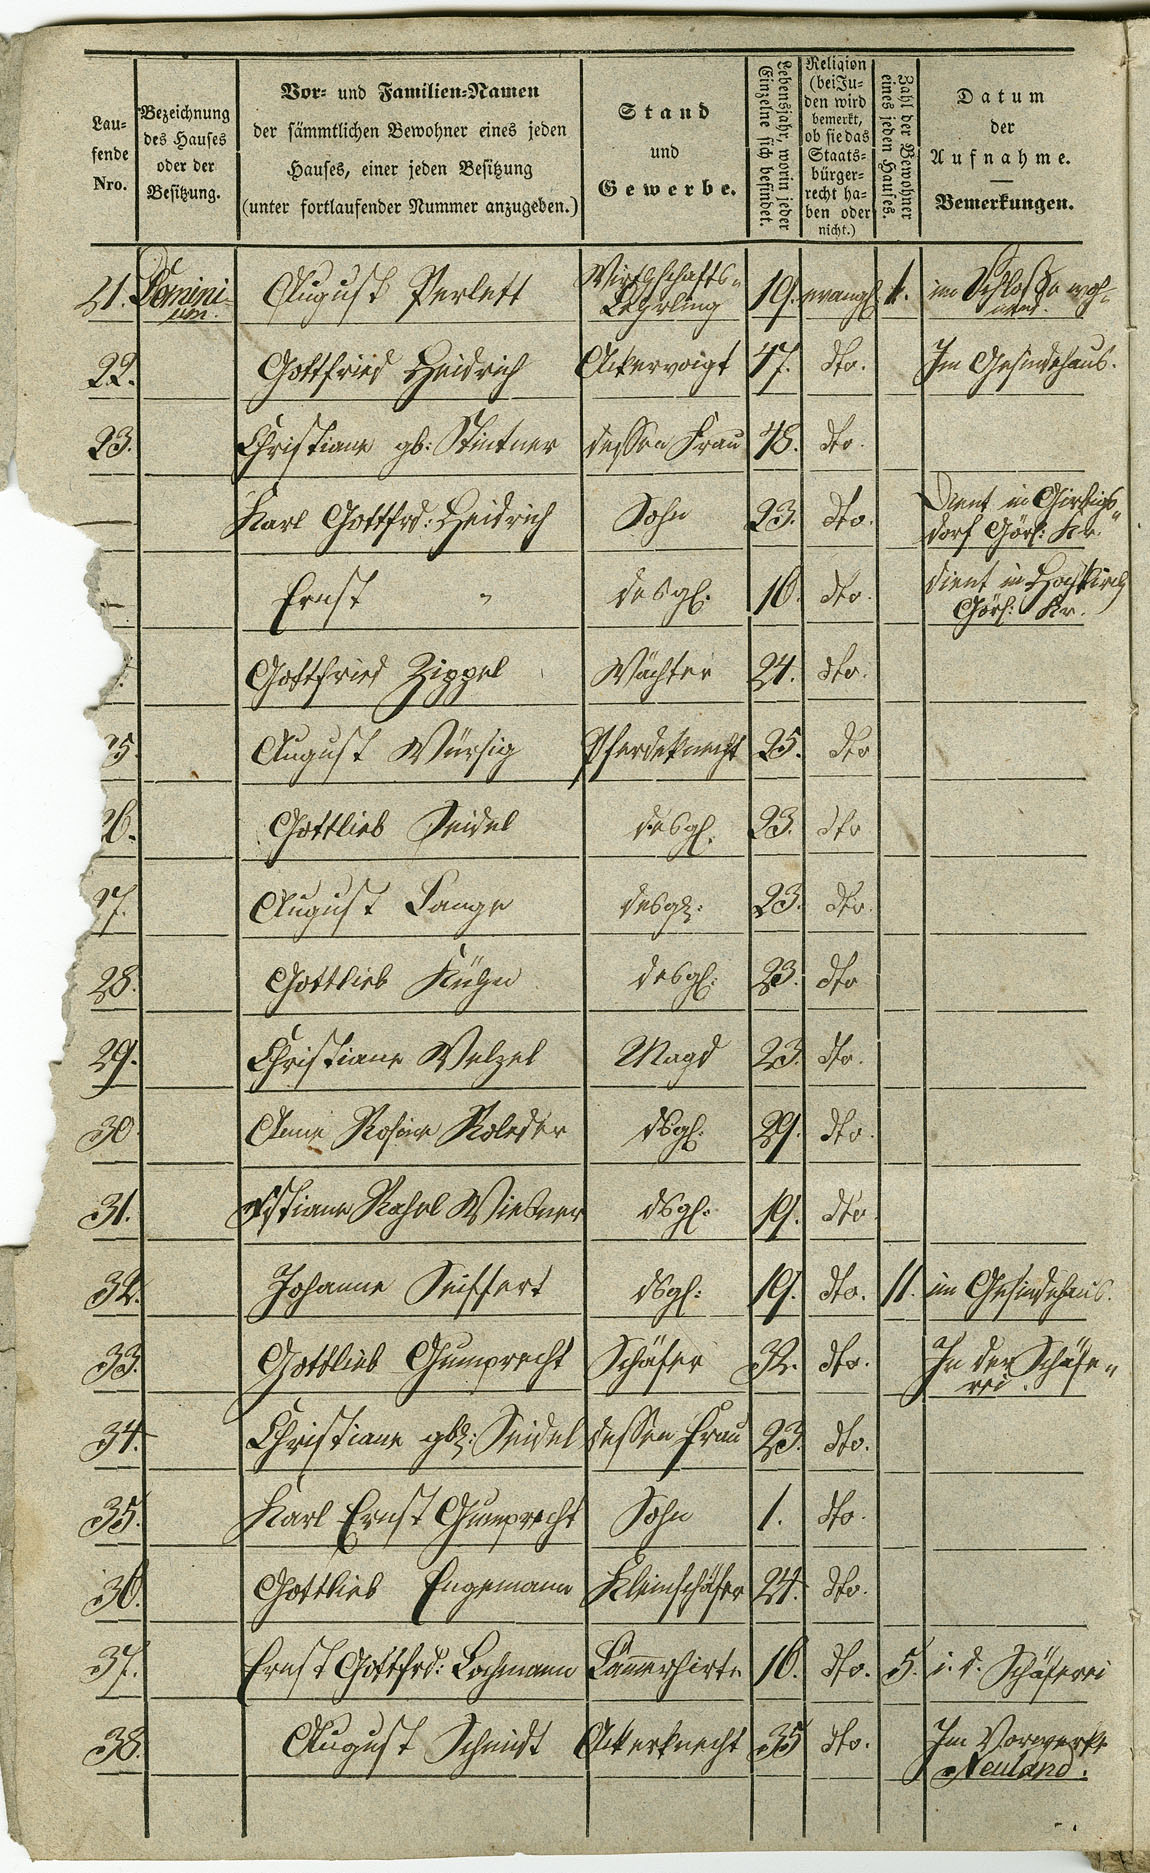 Lau-
fende
Nro.
Bezeichnung
des Hauses
oder der
Besitzung.
Vor- und Familien-Namen
der sämmtlichen Bewohner eines jeden
Hauses, einer jeden Besitzung
(unter fortlaufender Nummer anzugeben.)
Stand
und
Gewerbe.
Lebensjahr, worin jeder
Einzelne sich befindet.
Religion
(bei Ju-
den wird
bemerkt,
ob sie das
Staats-
bürger-
recht ha-
ben oder
nicht.)
Zahl der Bewohner
eines jeden Hauses.
Datum
der
Aufnahme.
Bemerkungen.
21. Domini- August Perlett Wirthschafts- 19. evangl. 1. im Schloße woh-
um. Lehrling nend.
22. Gottfried Heidrich Ackervoigt 47. dto. Im Gesindehaus.
23. Christiane gb: Stintner dessen Frau 48. dto.
— Karl Gottfrd: Heidrich Sohn 23. dto. Dient in Girbigs-
dorf Görl: Kr.
— Ernst " desgl. 16. dto. dient in Hochkirch
Görl: Kr.
Gottfried Zippel Wächter 24. dto.
25. August Würsig Pferdeknecht 25. dto
26. Gottlieb Seidel desgl. 23. dto
27. August Lange desgl: 23. dto.
28. Gottlieb Kühn desgl: 23. dto
29. Christiane Welzel Magd 23. dto.
30. Anne Rosine Roleder dsgl: 29. dto.
31. Rahel Wiesner dsgl: 19. dto
32. Johanne Seiffert dsgl: 19. dto. 11. im Gesindehaus.
33. Gottlieb Gumprecht Schäfer 32. dto. In der Schäfe-
rei.
34. Christiane gb: Seidel dessen Frau 23. dto.
35. Karl Ernst Gumprecht Sohn 1. dto.
36. Gottlieb Engemann Kleinschäfer 24. dto.
37. Ernst Gottfrd: Lachmann Lämmerhirte 16. dto. 5. i. d. Schäferei
38. August Schmidt Ackerknecht 35 dto. Im Vorwerke
Neuland.